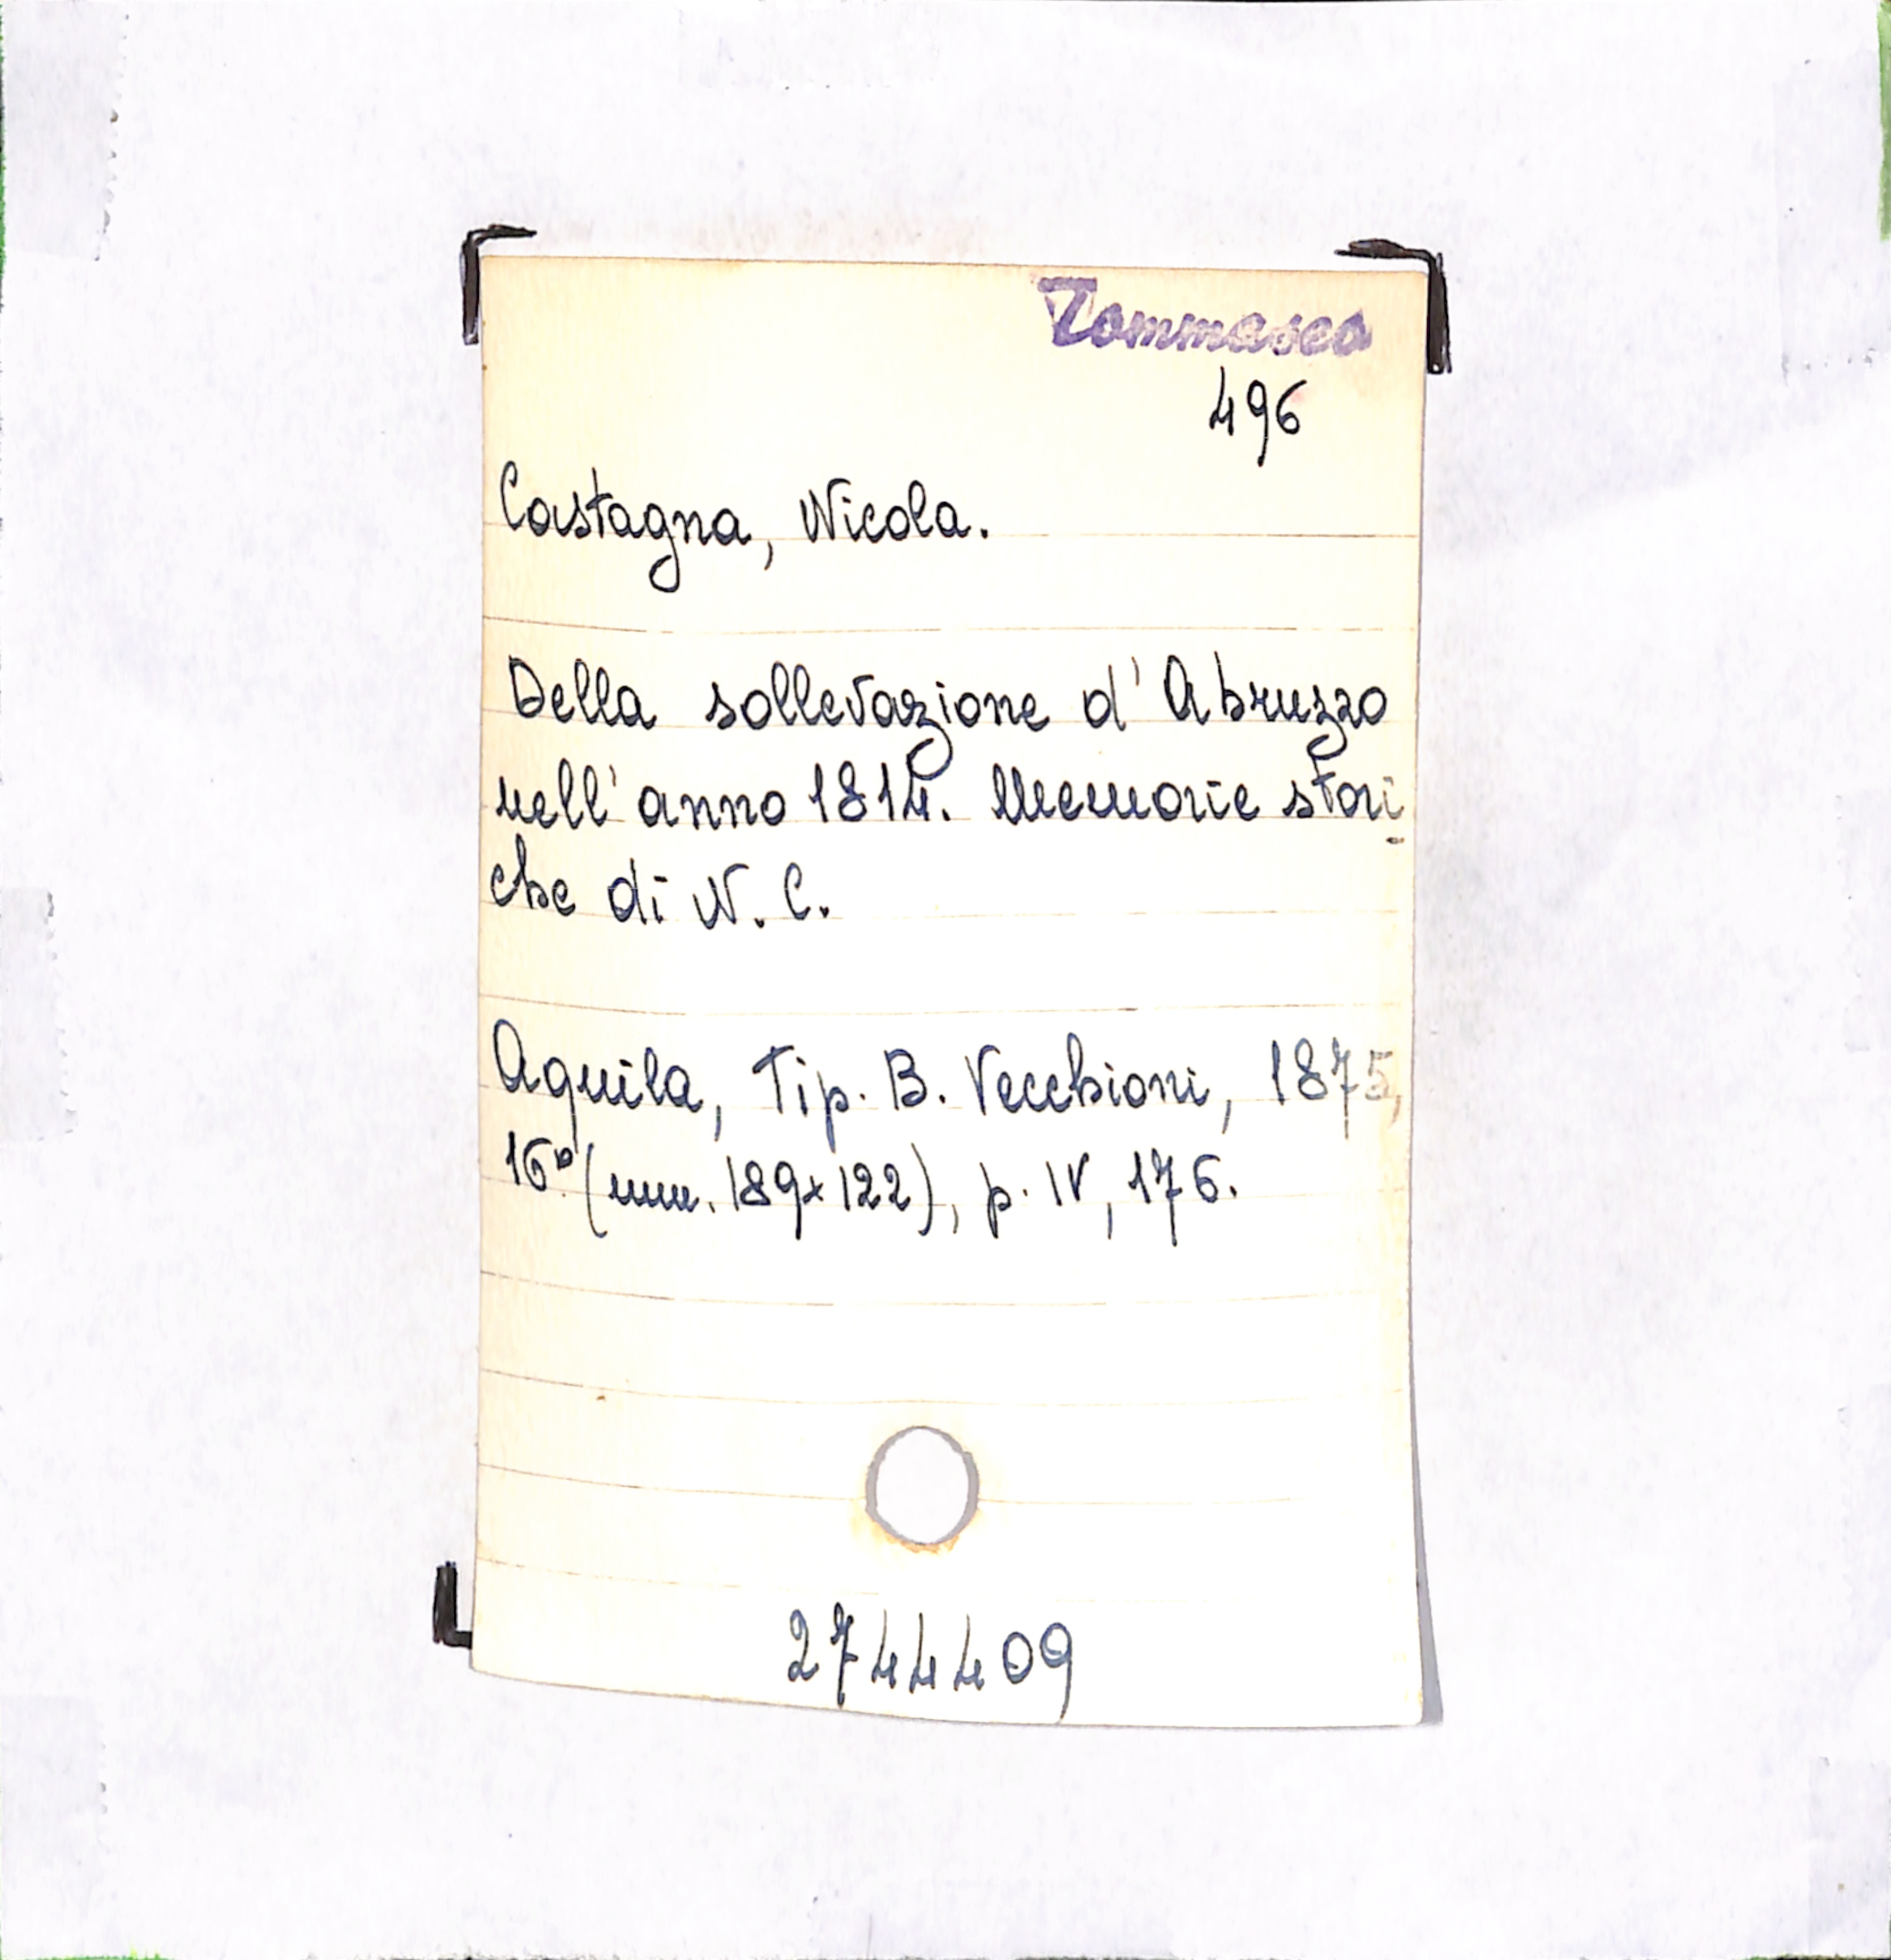 Tommaseo
496
Castagna, Nicola.
Della sollevazione d'Abruzzo
nell'anno 1814. Memorie stori-
che di N. C.
Aquila, Tip. B. Vecchioni, 1875,
16° (mm. 189x122), p. IV, 176.
2744409